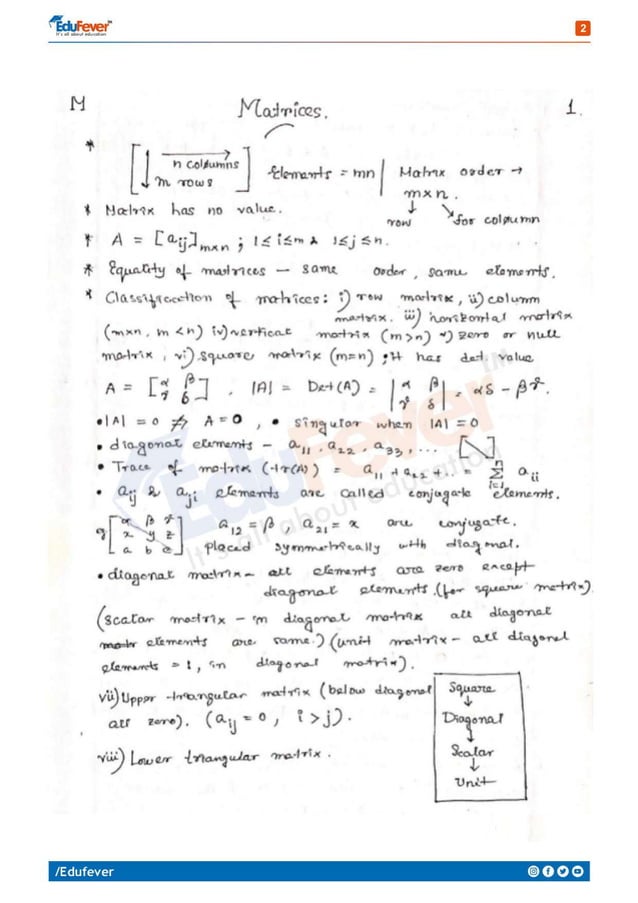 EduFever
It's all about education
2
M Matrices. 1.
* [→ n columns ↓ m rows] Elements = mn | Matrix order →
m×n.
row for column
* Matrix has no value.
* A = [aij]m×n ; 1≤i≤m & 1≤j≤n.
* Equality of matrices – same order, same elements.
* Classification of matrices: i) row matrix, ii) column
matrix. iii) horizontal matrix
(m×n, m<n) iv) vertical matrix (m>n) v) zero or null
matrix, vi) square matrix (m=n) ; it has det. value
A = [α β γ δ], |A| = Det(A) = |α β γ δ| = αδ – βγ.
• |A| = 0 ⇏ A = 0, • singular when |A| = 0
• diagonal elements – a11, a22, a33, ...
• Trace of matrix (tr(A)) = a11 + a22 + .. = Σ i=1 n aii
• aij & aji elements are called conjugate elements.
[α β γ x y z a b c] a12 = β, a21 = x are conjugate.
placed symmetrically with diagonal.
• diagonal matrix – all elements are zero except
diagonal elements. (for square matrix)
(scalar matrix – in diagonal matrix all diagonal
elements are same.) (unit matrix – all diagonal
elements = 1, in diagonal matrix).
vii) Upper triangular matrix (below diagonal
all zero). (aij = 0, i > j).
viii) Lower triangular matrix.
Square
↓
Diagonal
↓
Scalar
↓
Unit
EduFever
It's all about education
/Edufever